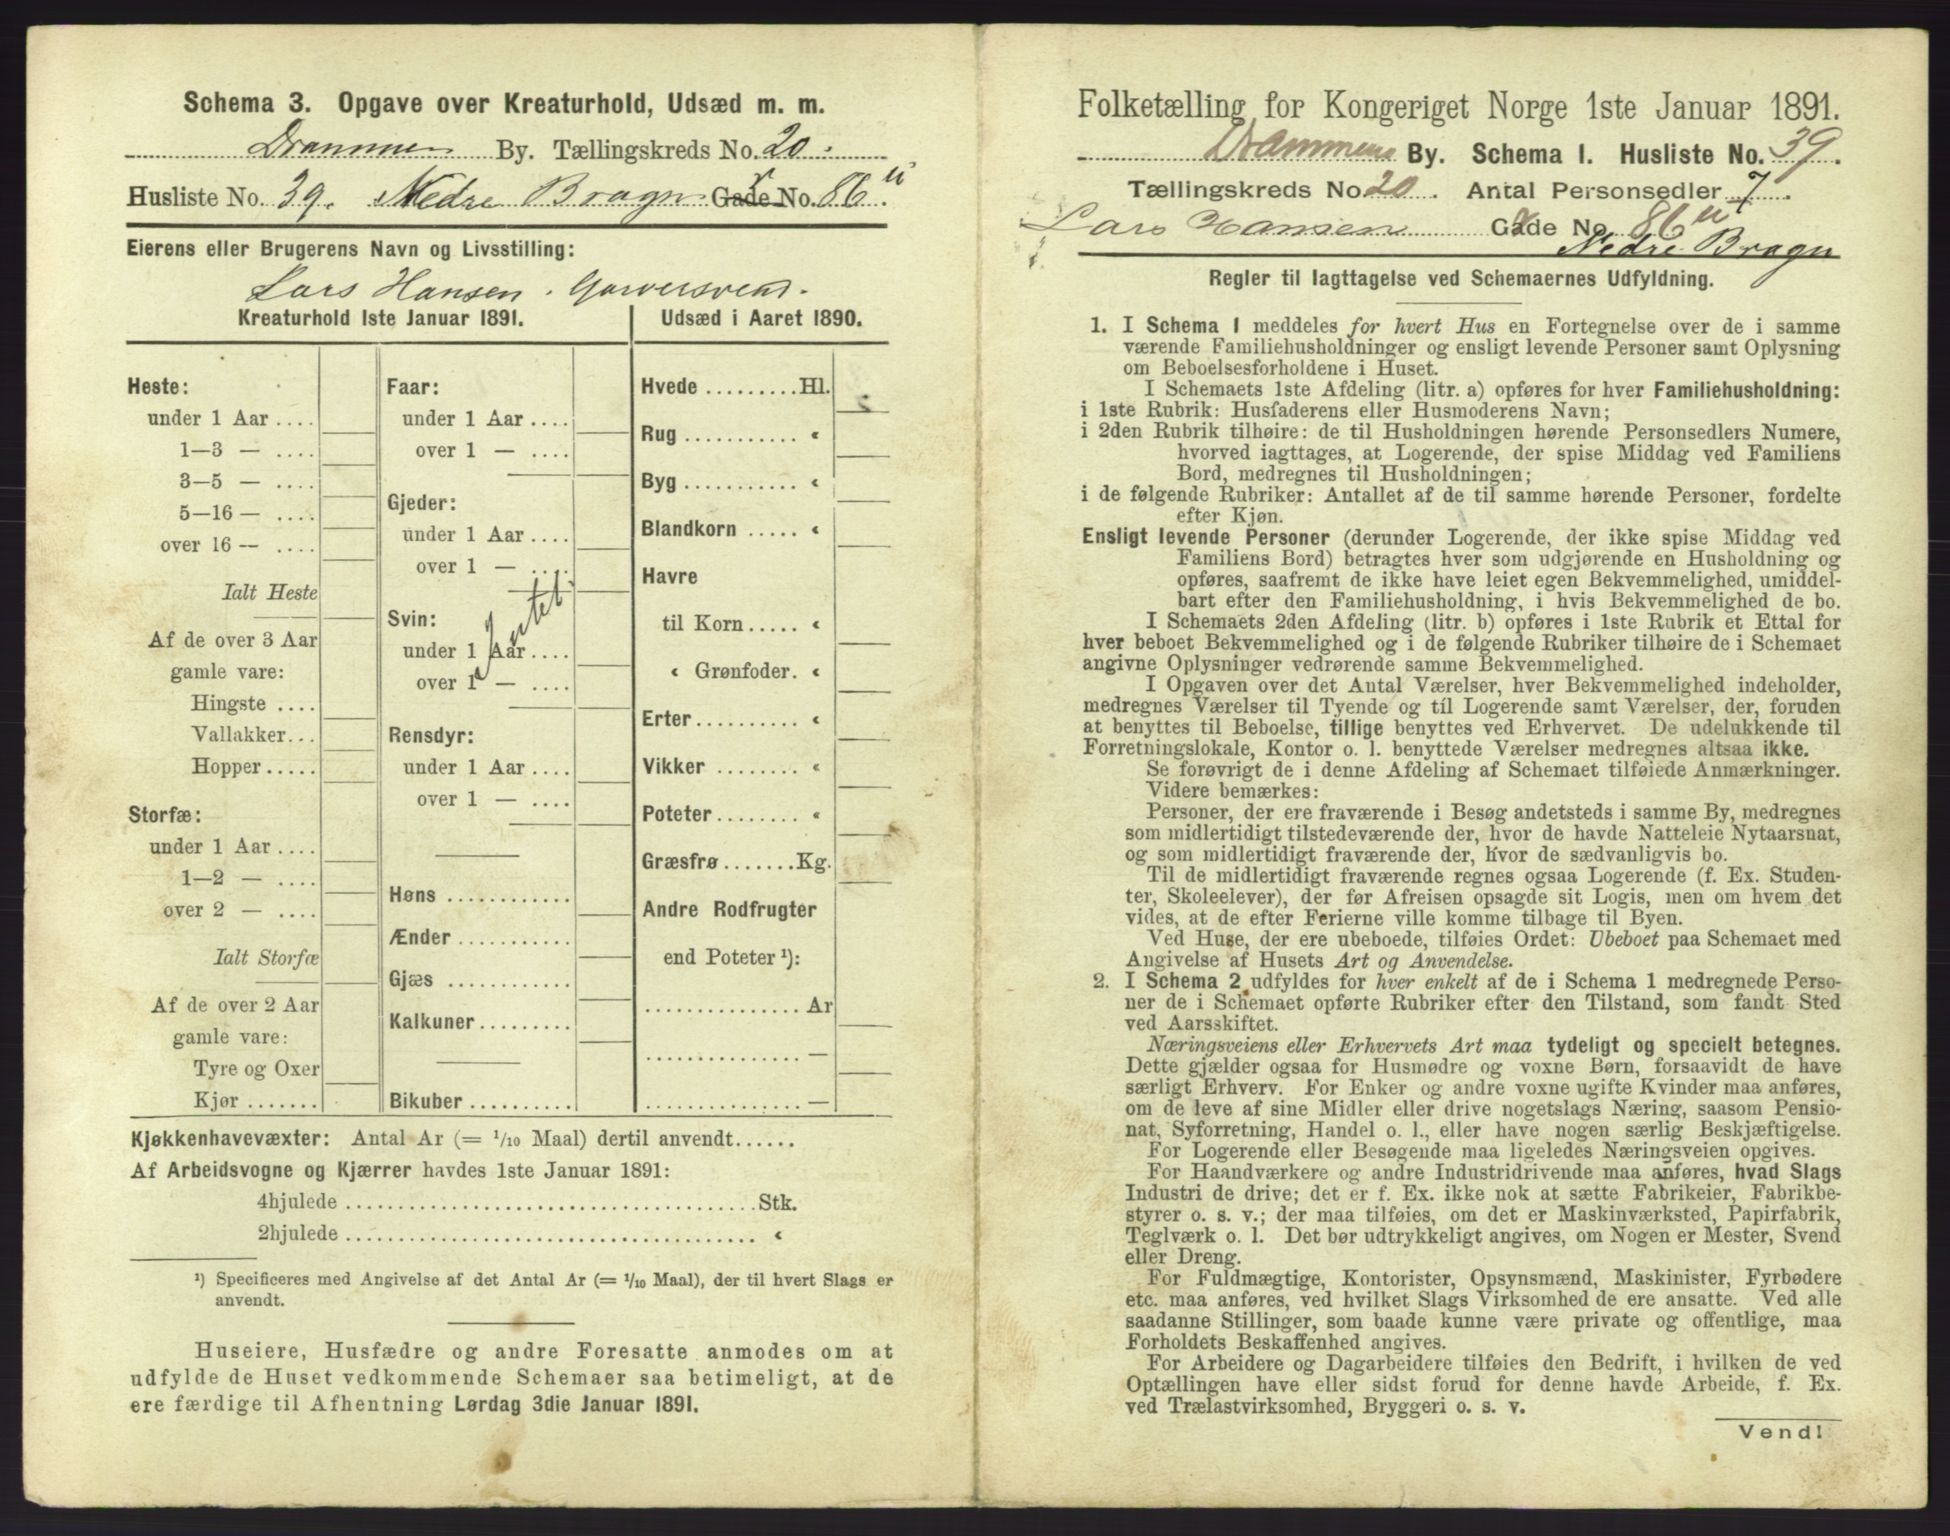 Schema 3. Opgave over Kreaturhold, Udsæd m. m.
Drammen By. Tællingskreds No. 20.
Husliste No. 39. Nedre Bragn Gade No. 86 u.
Eierens eller Brugerens Navn og Livsstilling:
Lars Hansen. Garversvend.
Kreaturhold 1ste Januar 1891.
Heste:
under 1 Aar ....
1—3 — ....
3—5 — ....
5—16 — ....
over 16 — ....
Ialt Heste
Af de over 3 Aar
gamle vare:
Hingste ....
Vallakker...
Hopper.....
Storfæ:
under 1 Aar ....
1—2 — ....
over 2 — ....
Ialt Storfæ
Af de over 2 Aar
gamle vare:
Tyre og Oxer
Kjør .......
Faar:
under 1 Aar ....
over 1 — ....
Gjeder:
under 1 Aar ....
over 1 — ....
Intet
Svin:
under 1 Aar....
over 1 — ....
Rensdyr:
under 1 Aar....
over 1 — ....
Høns ............
Ænder ...........
Gjæs ............
Kalkuner.........
Bikuber ..........
Udsæd i Aaret 1890.
Hvede .........Hl.
Rug ........... «
Byg ........... «
Blandkorn ..... «
Havre
til Korn..... «
« Grønfoder. «
Erter.......... «
Vikker ........ «
Poteter........ «
Græsfrø .......Kg.
Andre Rodfrugter
end Poteter ¹):
............... Ar
............... —
............... —
Kjøkkenhavevæxter: Antal Ar (= 1/10 Maal) dertil anvendt......
Af Arbeidsvogne og Kjærrer havdes 1ste Januar 1891:
4hjulede .......................................Stk.
2hjulede ....................................... «
¹) Specificeres med Angivelse af det Antal Ar (= 1/10 Maal), der til hvert Slags er
anvendt.
Huseiere, Husfædre og andre Foresatte anmodes om at
udfylde de Huset vedkommende Schemaer saa betimeligt, at de
ere færdige til Afhentning Lørdag 3die Januar 1891.
Folketælling for Kongeriget Norge 1ste Januar 1891.
Drammens By. Schema 1. Husliste No. 39.
Tællingskreds No. 20. Antal Personsedler 7.
Lars Hansen Gade No. 86 u
Nedre Bragn
Regler til Iagttagelse ved Schemaernes Udfyldning.
1. I Schema 1 meddeles for hvert Hus en Fortegnelse over de i samme
værende Familiehusholdninger og ensligt levende Personer samt Oplysning
om Beboelsesforholdene i Huset.
I Schemaets 1ste Afdeling (litr. a) opføres for hver Familiehusholdning:
i 1ste Rubrik: Husfaderens eller Husmoderens Navn;
i 2den Rubrik tilhøire: de til Husholdningen hørende Personsedlers Numere,
hvorved iagttages, at Logerende, der spise Middag ved Familiens
Bord, medregnes til Husholdningen;
i de følgende Rubriker: Antallet af de til samme hørende Personer, fordelte
efter Kjøn.
Ensligt levende Personer (derunder Logerende, der ikke spise Middag ved
Familiens Bord) betragtes hver som udgjørende en Husholdning og
opføres, saafremt de ikke have leiet egen Bekvemmelighed, umiddel-
bart efter den Familiehusholdning, i hvis Bekvemmelighed de bo.
I Schemaets 2den Afdeling (litr. b) opføres i 1ste Rubrik et Ettal for
hver beboet Bekvemmelighed og i de følgende Rubriker tilhøire de i Schemaet
angivne Oplysninger vedrørende samme Bekvemmelighed.
I Opgaven over det Antal Værelser, hver Bekvemmelighed indeholder,
medregnes Værelser til Tyende og til Logerende samt Værelser, der, foruden
at benyttes til Beboelse, tillige benyttes ved Erhvervet. De udelukkende til
Forretningslokale, Kontor o. l. benyttede Værelser medregnes altsaa ikke.
Se forøvrigt de i denne Afdeling af Schemaet tilføiede Anmærkninger.
Videre bemærkes:
Personer, der ere fraværende i Besøg andetsteds i samme By, medregnes
som midlertidigt tilstedeværende der, hvor de havde Natteleie Nytaarsnat,
og som midlertidigt fraværende der, hvor de sædvanligvis bo.
Til de midlertidigt fraværende regnes ogsaa Logerende (f. Ex. Studen-
ter, Skoleelever), der før Afreisen opsagde sit Logis, men om hvem det
vides, at de efter Ferierne ville komme tilbage til Byen.
Ved Huse, der ere ubeboede, tilføies Ordet: Ubeboet paa Schemaet med
Angivelse af Husets Art og Anvendelse.
2. I Schema 2 udfyldes for hver enkelt af de i Schema 1 medregnede Perso-
ner de i Schemaet opførte Rubriker efter den Tilstand, som fandt Sted
ved Aarsskiftet.
Næringsveiens eller Erhvervets Art maa tydeligt og specielt betegnes.
Dette gjælder ogsaa for Husmødre og voxne Børn, forsaavidt de have
særligt Erhverv. For Enker og andre voxne ugifte Kvinder maa anføres,
om de leve af sine Midler eller drive nogetslags Næring, saasom Pensio-
nat, Syforretning, Handel o. l., eller have nogen særlig Beskjæftigelse.
For Logerende eller Besøgende maa ligeledes Næringsveien opgives.
For Haandværkere og andre Industridrivende maa anføres, hvad Slags
Industri de drive; det er f. Ex. ikke nok at sætte Fabrikeier, Fabrikbe-
styrer o. s. v.; der maa tilføies, om det er Maskinværksted, Papirfabrik,
Teglværk o. l. Det bør udtrykkeligt angives, om Nogen er Mester, Svend
eller Dreng.
For Fuldmægtige, Kontorister, Opsynsmænd, Maskinister, Fyrbødere
etc. maa anføres, ved hvilket Slags Virksomhed de ere ansatte. Ved alle
saadanne Stillinger, som baade kunne være private og offentlige, maa
Forholdets Beskaffenhed angives.
For Arbeidere og Dagarbeidere tilføies den Bedrift, i hvilken de ved
Optællingen have eller sidst forud for denne havde Arbeide, f. Ex.
ved Trælastvirksomhed, Bryggeri o. s. v.
Vend!